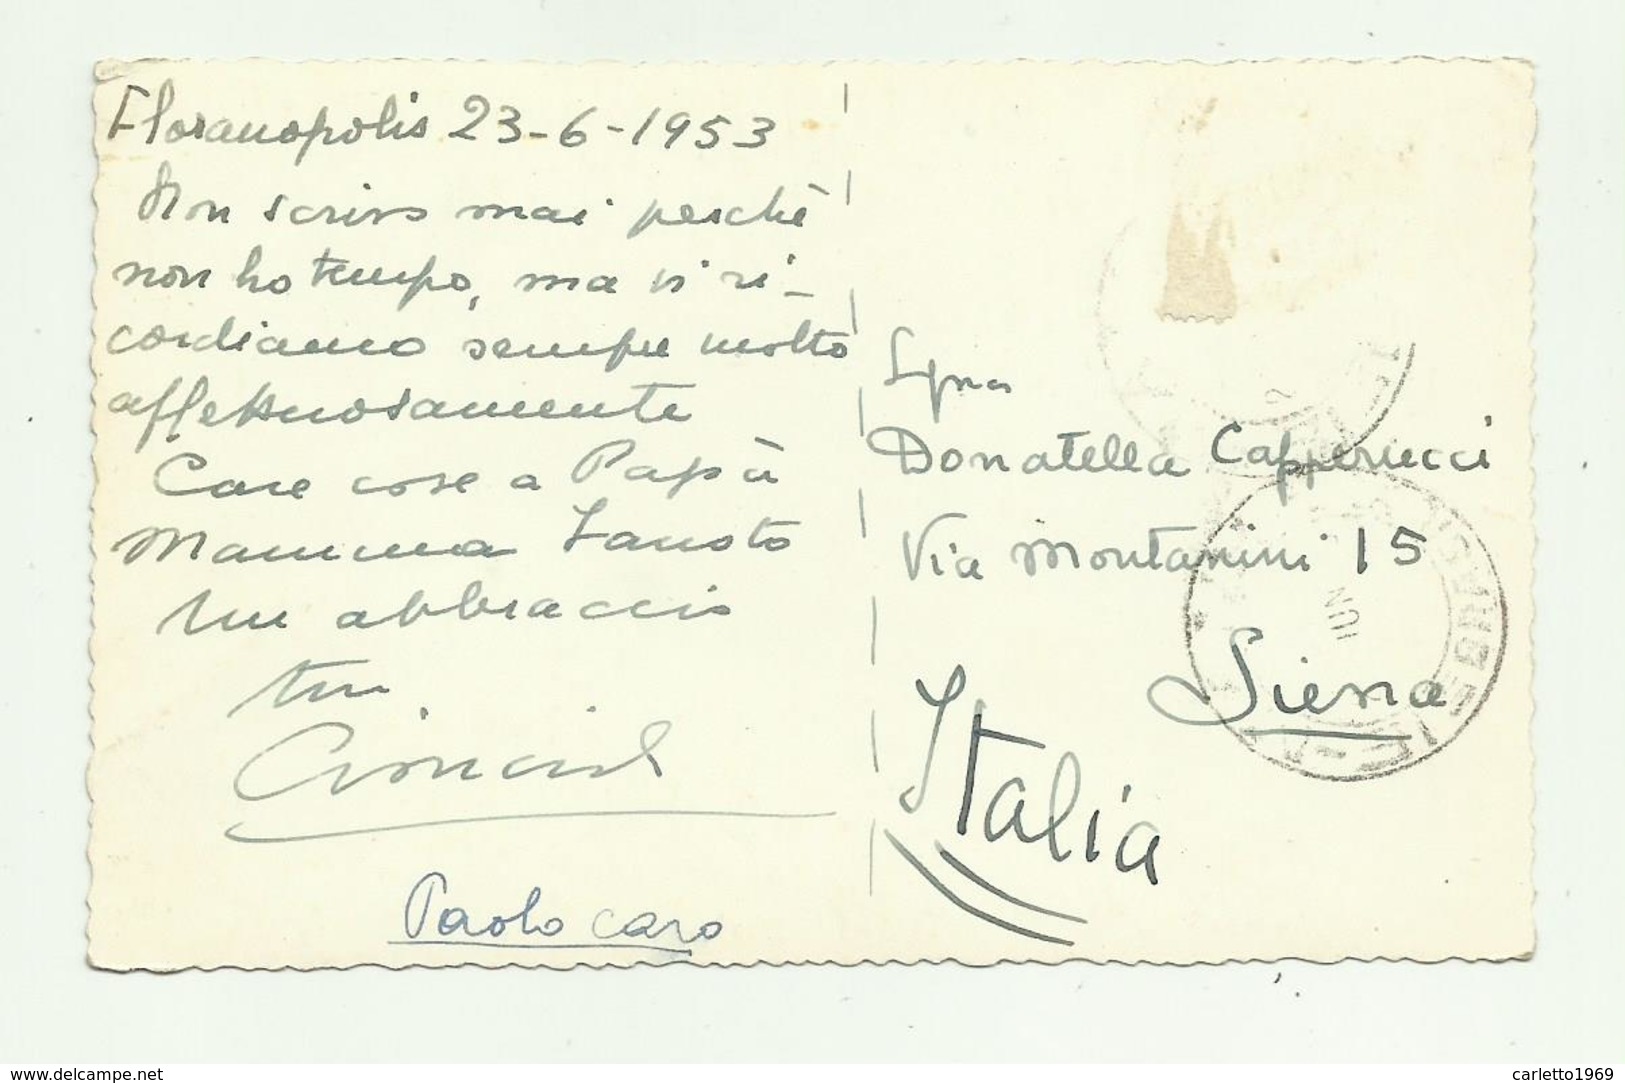 Floranopolis 23-6-1953
Non scrivo mai perchè
non ho tempo, ma vi ri-
cordiamo sempre molto
affettuosamente
Care cose a Papà
Mamma Fausto
Un abbraccio
tuo
Paolo caro
Donatella Capperucci
Via Montanini 15
Siena
Italia
BRASIL
JUN
www.delcampe.net
carletto1969